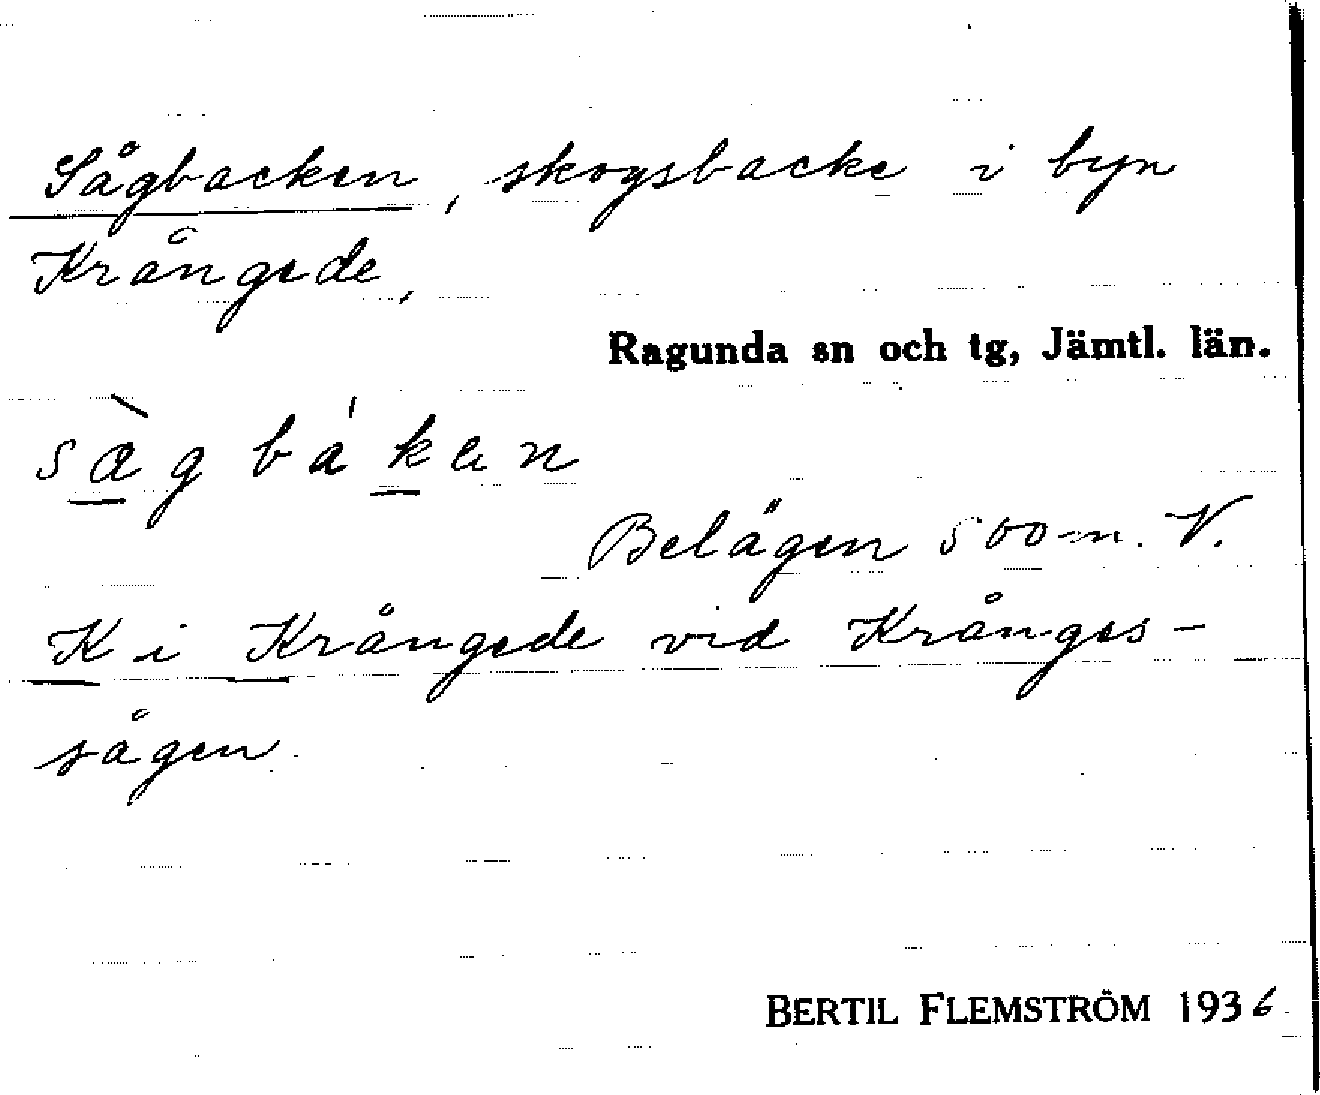 Sågbacken, skogsbacke i byn
Krångede,
Ragunda sn och tg, Jämtl. län.
Belägen 500 m. V.
K i Krångede vid Krånges-
sågen.
BERTIL FLEMSTRÖM 1936